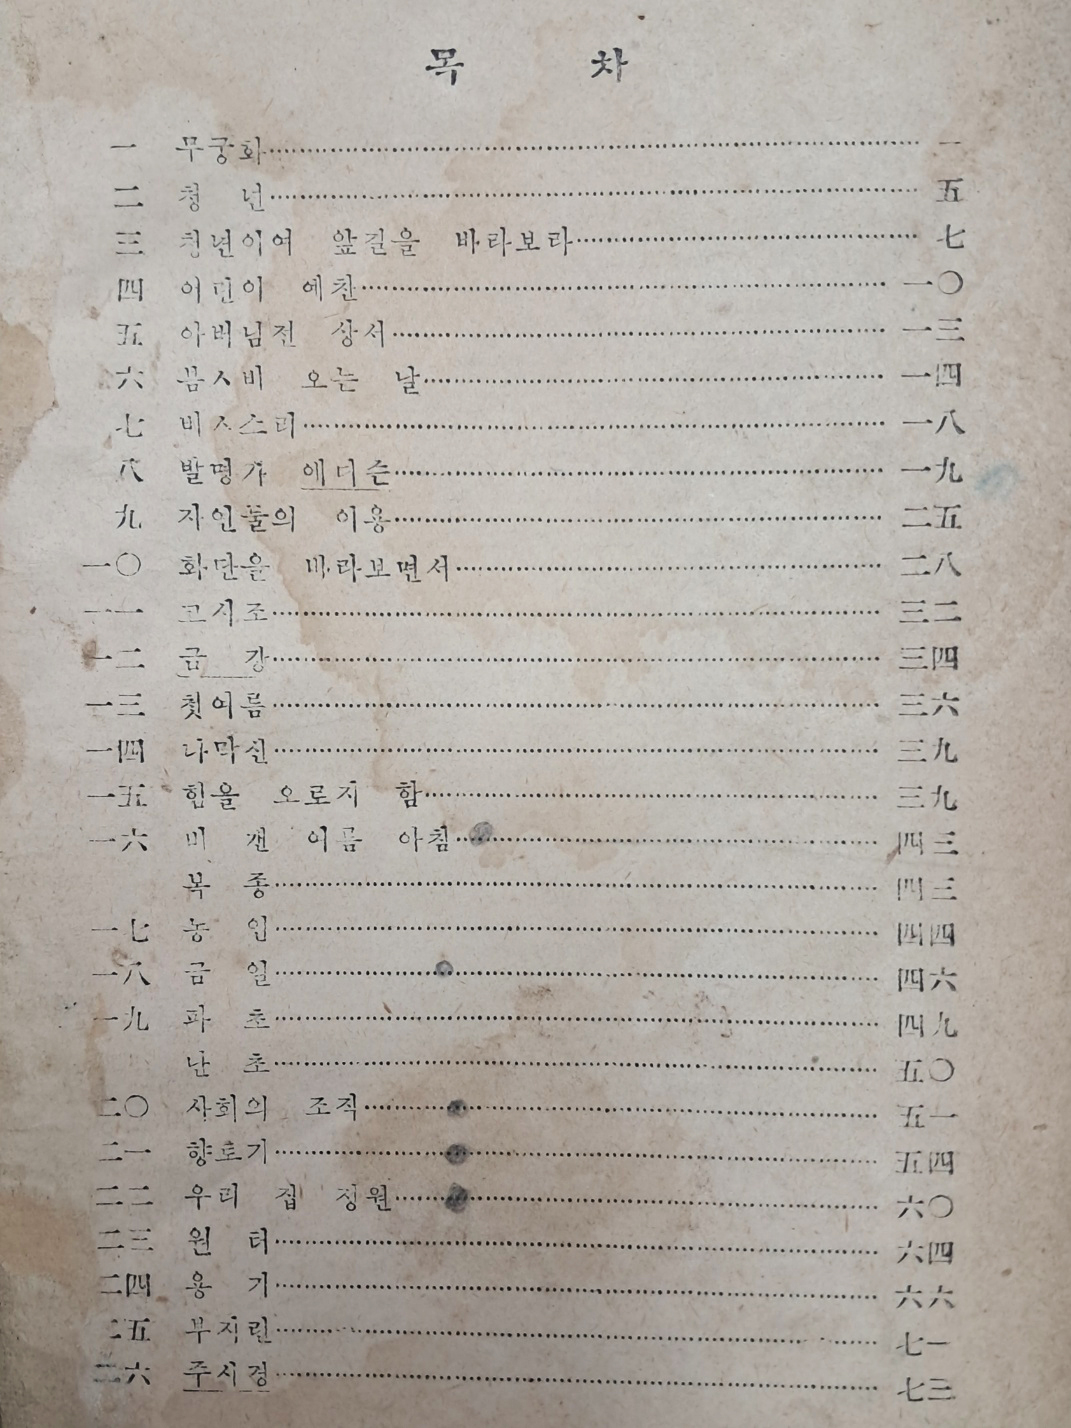 목 차
一 무궁화 一
二 청 년 五
三 청년이여 앞길을 바라보라 七
四 어린이 예찬 一〇
五 아버님전 상서 一三
六 봄ㅅ비 오는 날 一四
七 비ㅅ소리 一八
八 발명가 에디슨 一九
九 자연물의 이용 二五
一〇 화단을 바라보면서 二八
一一 고시조 三二
一二 금 강 三四
一三 첫여름 三六
一四 나막신 三九
一五 힘을 오로지 함 三九
一六 비 갠 여름 아침 四三
복 종 四三
一七 농 인 四四
一八 금 일 四六
一九 파 초 四九
난 초 五〇
二〇 사회의 조직 五一
二一 향토기 五四
二二 우리 집 정원 六〇
二三 원 터 六四
二四 용 기 六六
二五 부지런 七一
二六 주시경 七三